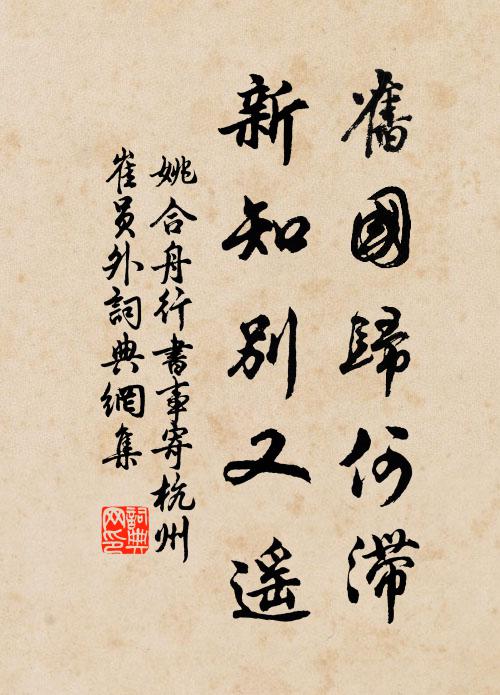 舊國歸何滯
新知別又遥
姚合舟行書事寄杭州
崔員外詞典網集
詞典
网印